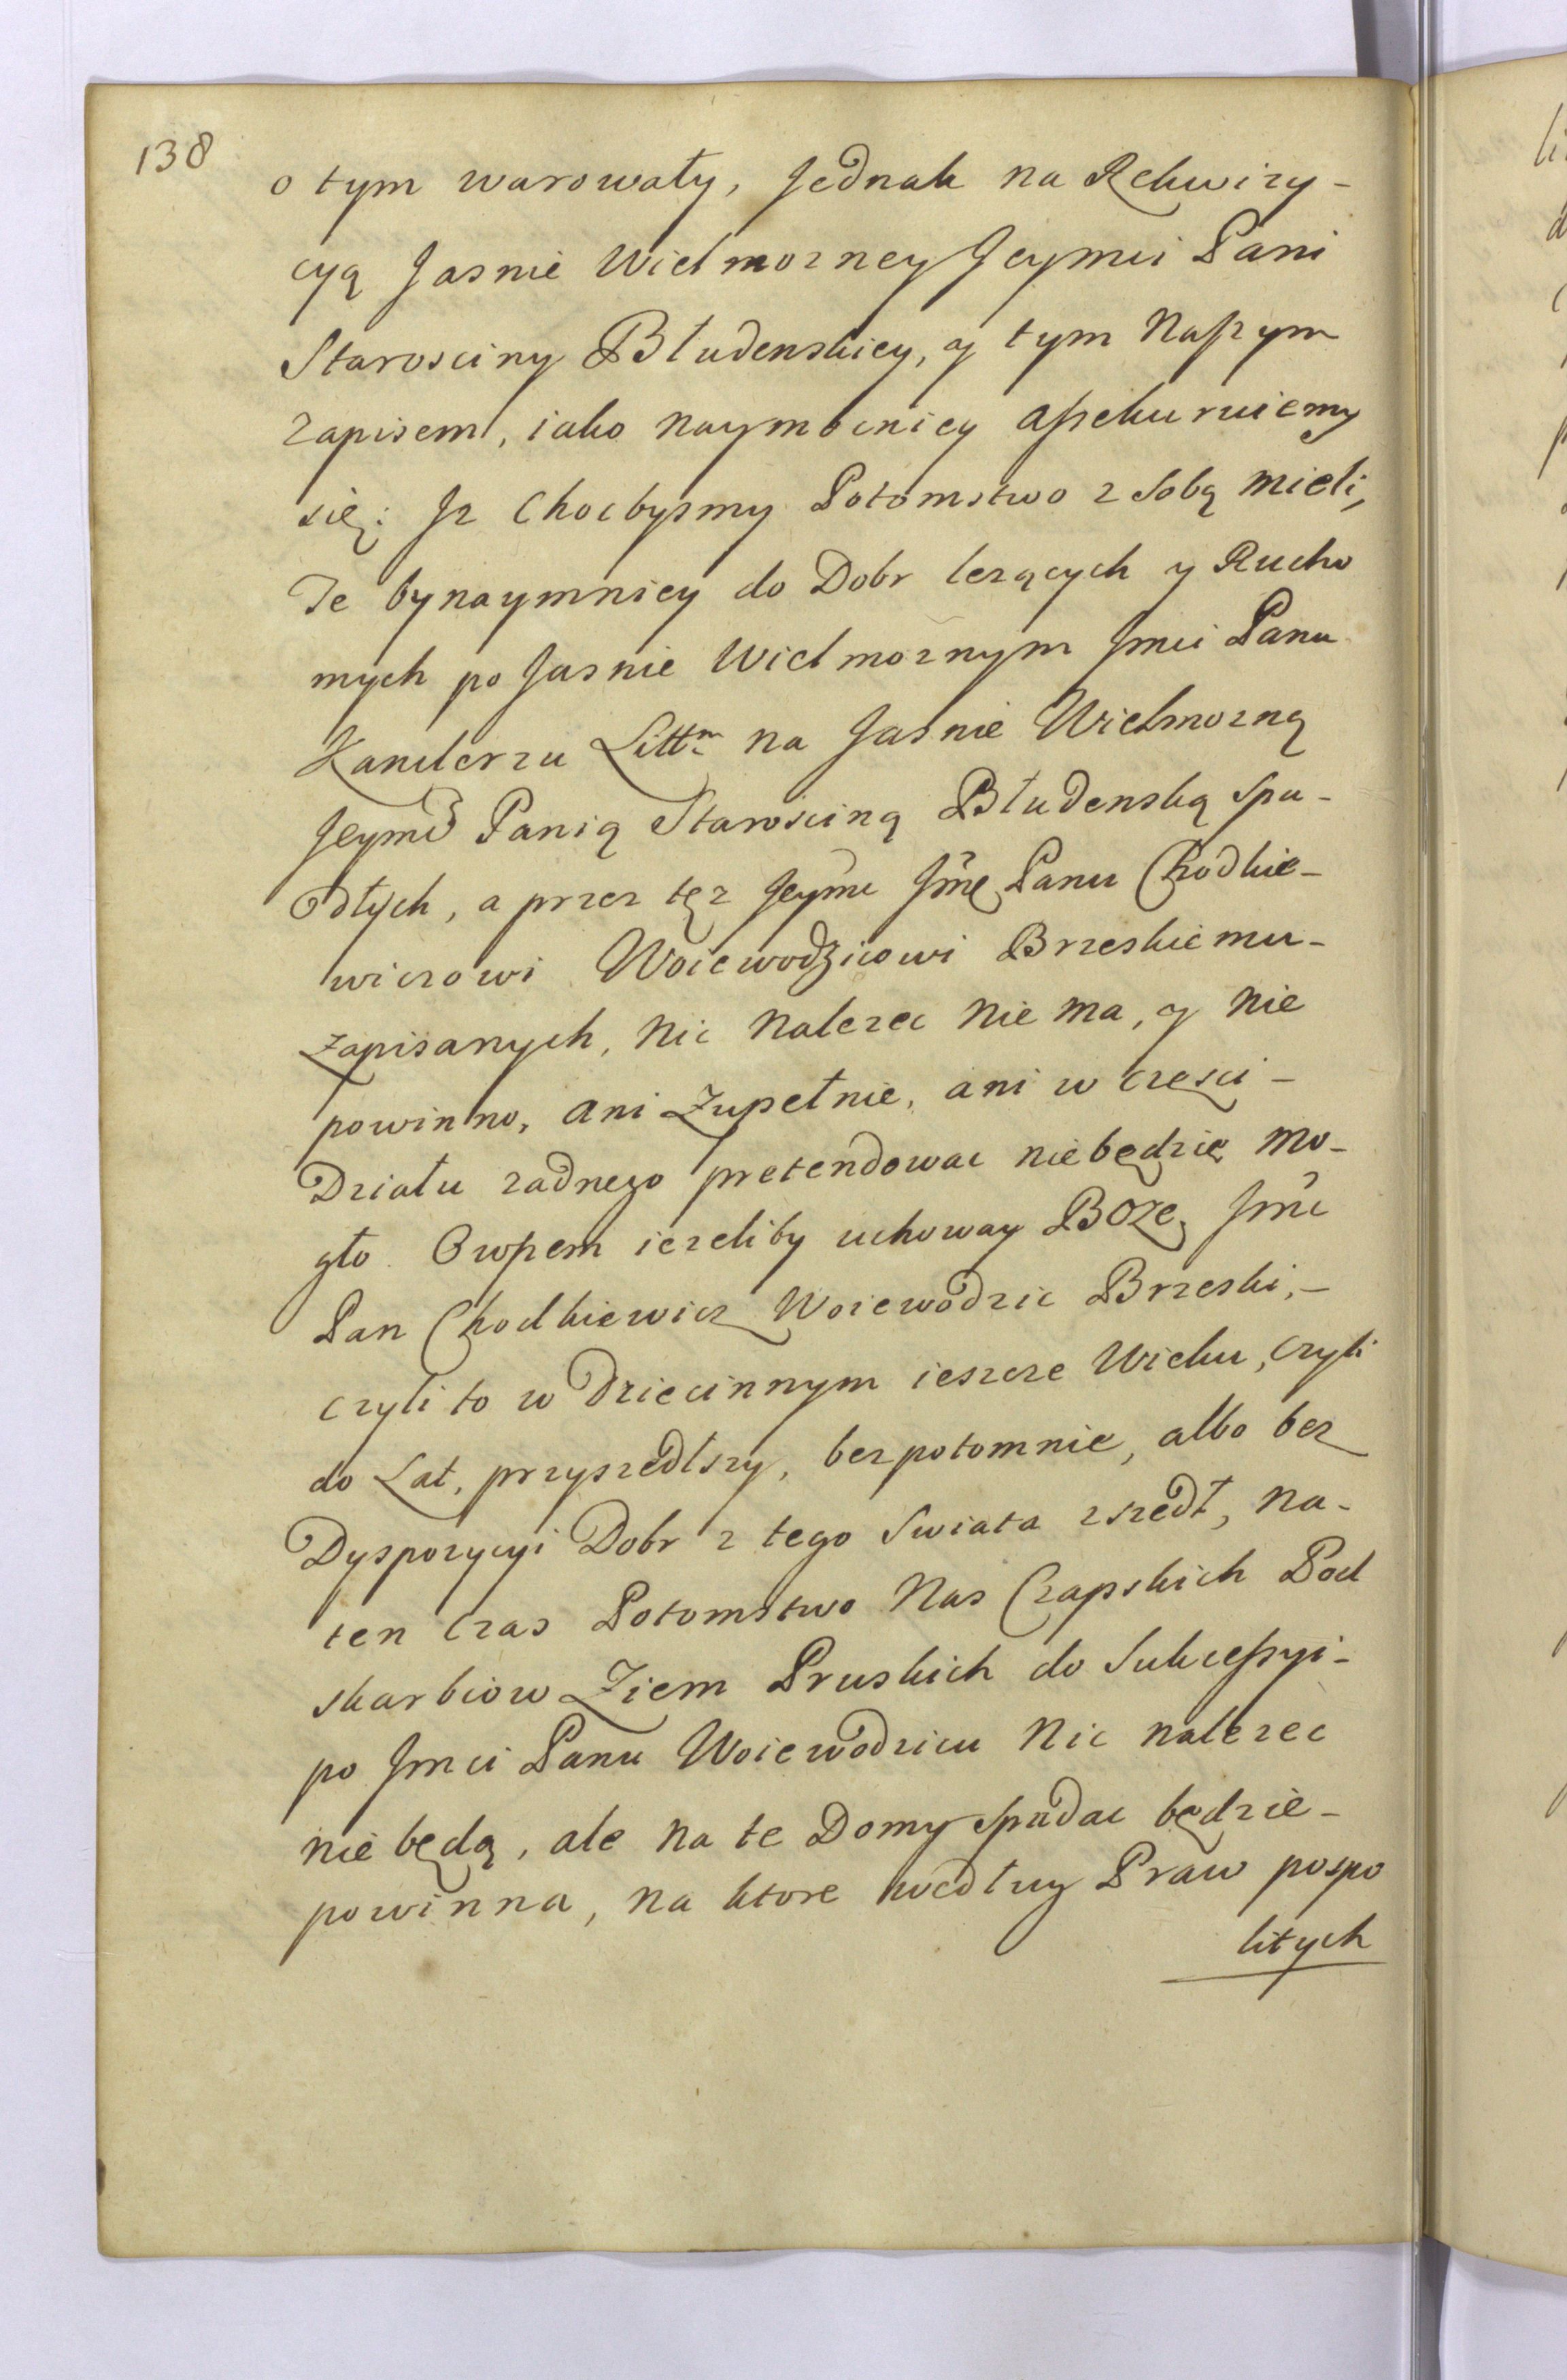 138
o tym warowały, Jednak na Rekwizy-
cyą Jasnie Wielmozney Jeymci Pani
Starosciny Błudenskiey, y tym Naszym
zapisem, iako naymocniey assekuruiemy
się: Jz Chocbysmy Potomstwo z sobą mieli,
Te bynaymniey do Dobr lezących y Rucho
mych po Jasnie Wielmoznym Jmci Panu
Kanclerzu Littm na Jasnie Wielmozną
Jeymć Panią Starosciną Błudenską spa-
dłych, a przez tęz Jeymc Jmę Panu Chodkie-
wiczowi Woiewodzicowi Brzeskiemu-
zapisanych, Nic Nalezec Nie ma, y Nie
powinno, ani Zupełnie, ani w częsci-
Działu zadnego pretendowac niebędzie mo-
gło. Owszem iezeliby uchoway BOZE, Jmc
Pan Chodkiewicz Woiewodzic Brzeski,-
czyli to w Dziecinnym ieszcze Wieku, czyli
do Lat, przyszedłszy, bezpotomnie, albo bez
Dyspozycyi Dobr z tego swiata zszedł, na-
ten czas Potomstwo Nas Czapskich Pod
skarbiow Ziem Pruskich do Sukcessyi-
po Jmci Panu Woiewodzicu Nic nalezec
nie będą, ale na te Domy spadac będzie-
powinna, na ktore według Praw pospo
litych